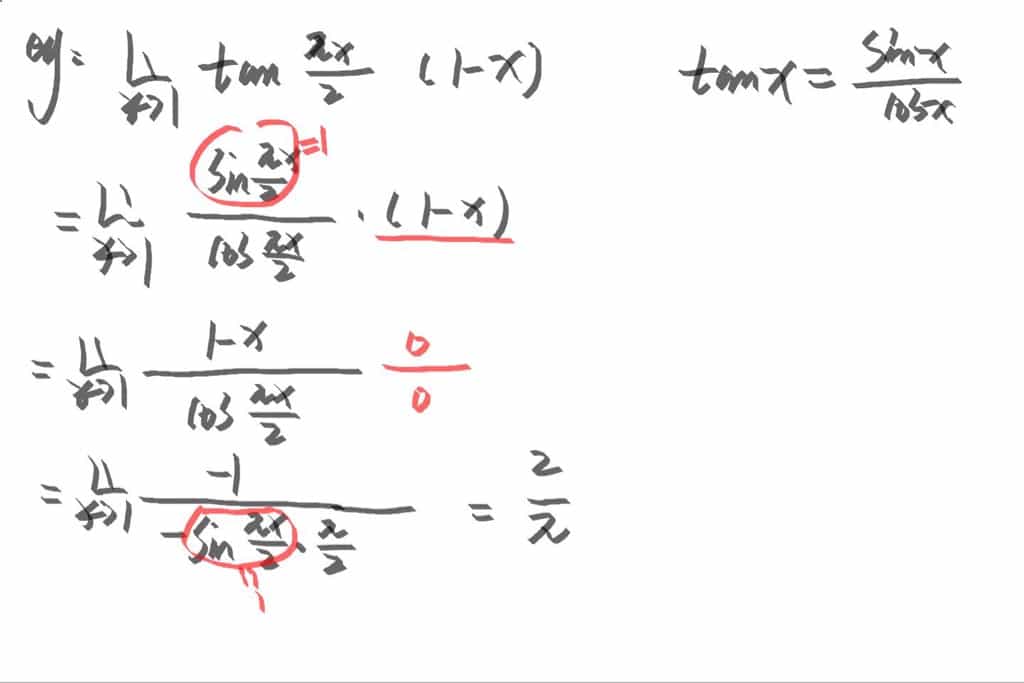 eg: lim x→1 tan πx/2 (1-x)    tanx = sinx/cosx
= lim x→1 sin πx/2 / cos πx/2 · (1-x)    =1
= lim x→1 1-x / cos πx/2    0/0
= lim x→1 -1 / -sin πx/2 · π/2 = 2/π
=1